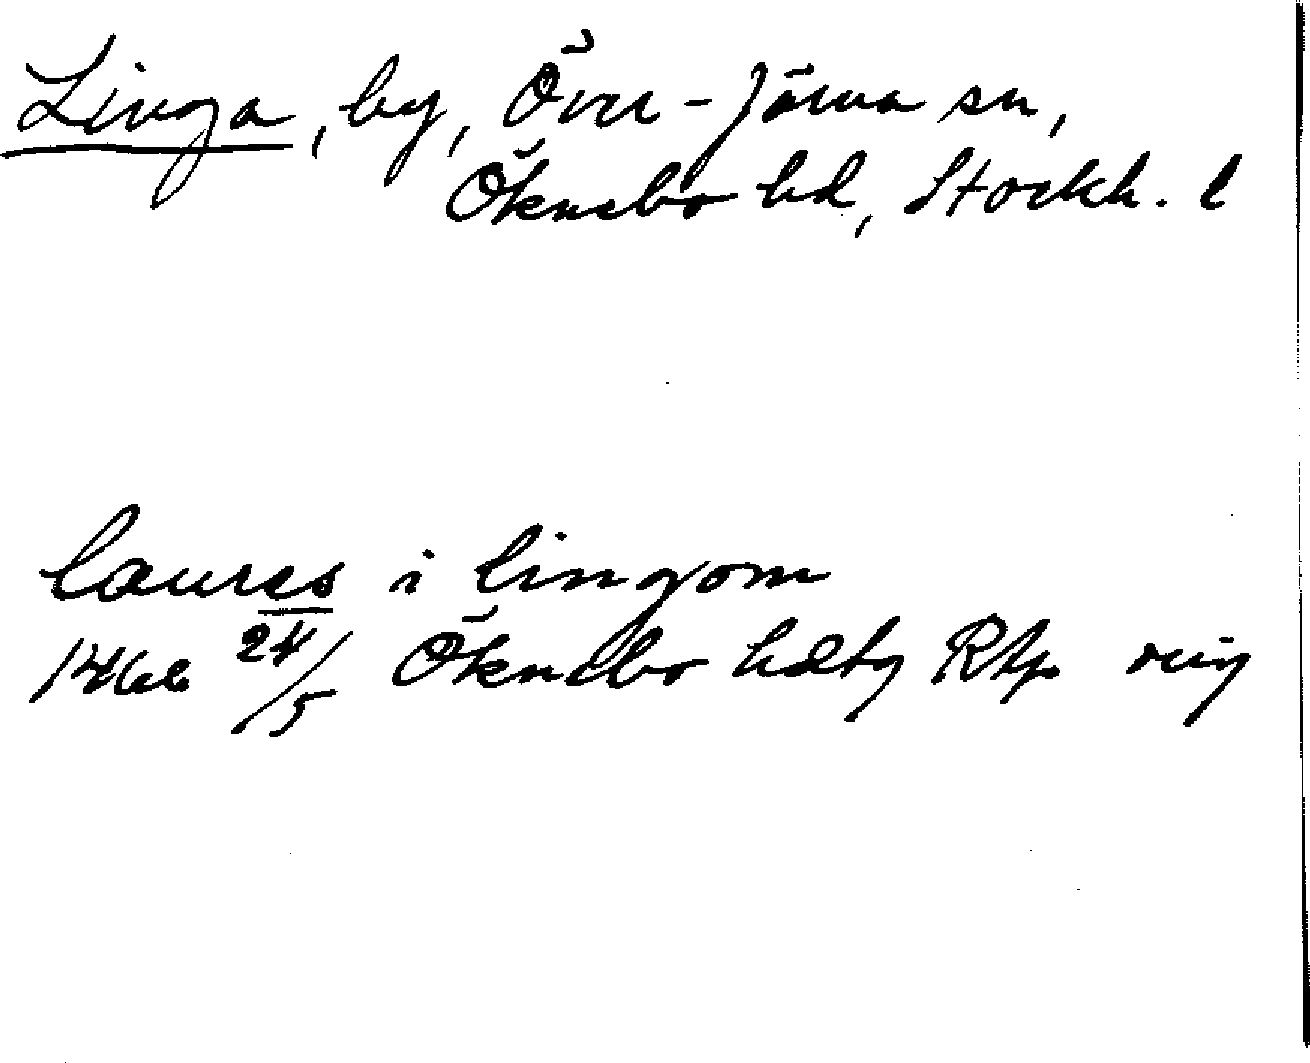 Linga, by, Över-Järna sn,
Öknebo hd, Stockh. l
laures i lingom
1466 24/5 Öknebo hdtg RAp orig